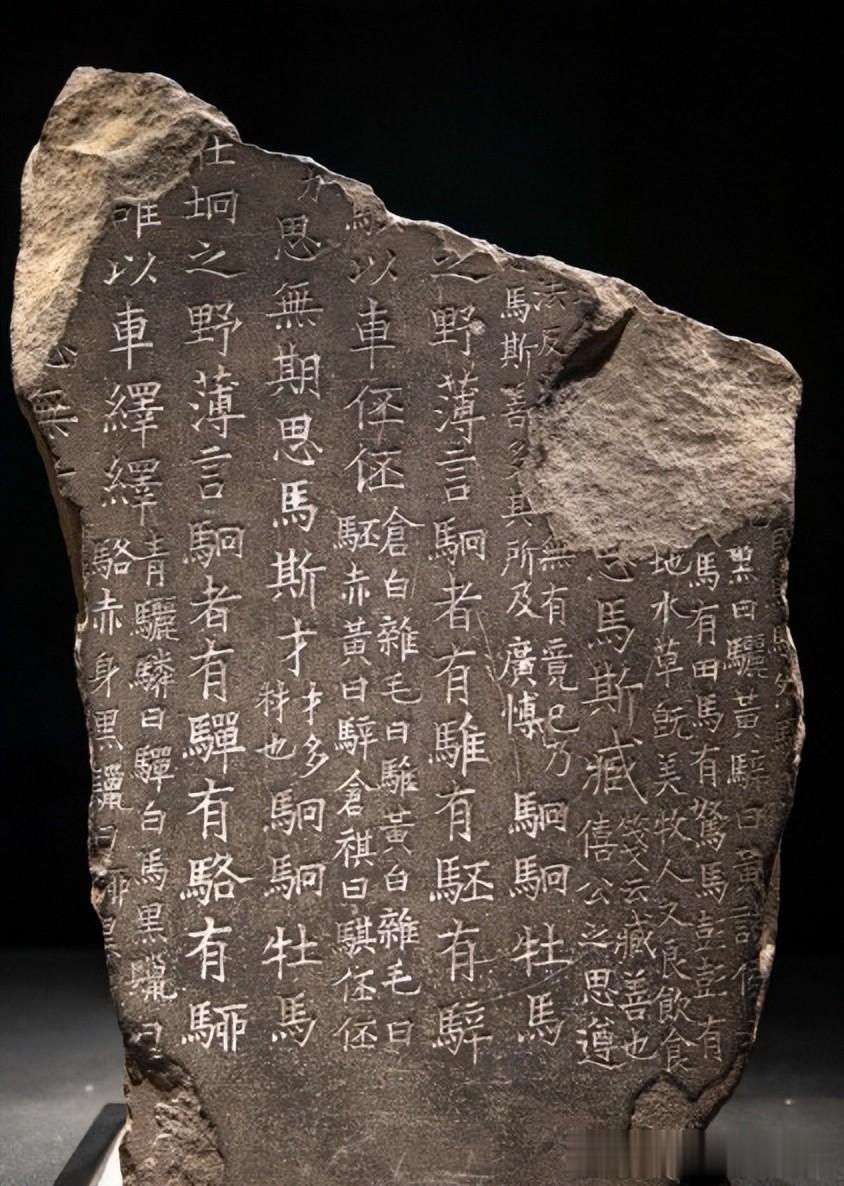 黑曰驪黃騂曰黃諸
馬有田馬有駑馬彭彭有
地水草旣美牧人又良飲食
思馬斯臧箋云臧善也
僖公之思遵
法反 無有竟已乃
馬斯善多其所及廣博 駉駉牡馬
之野薄言駉者有騅有駓有騂
以車伾伾倉白雜毛曰騅黃白雜毛曰
駓赤黃曰騂倉祺曰騏伾伾
力思無期思馬斯才才多
材也駉駉牡馬
在坰之野薄言駉者有驒有駱有駵
以車繹繹青驪驎曰驒白馬黑鬣曰
駱赤身黑鬣曰駵黑
無